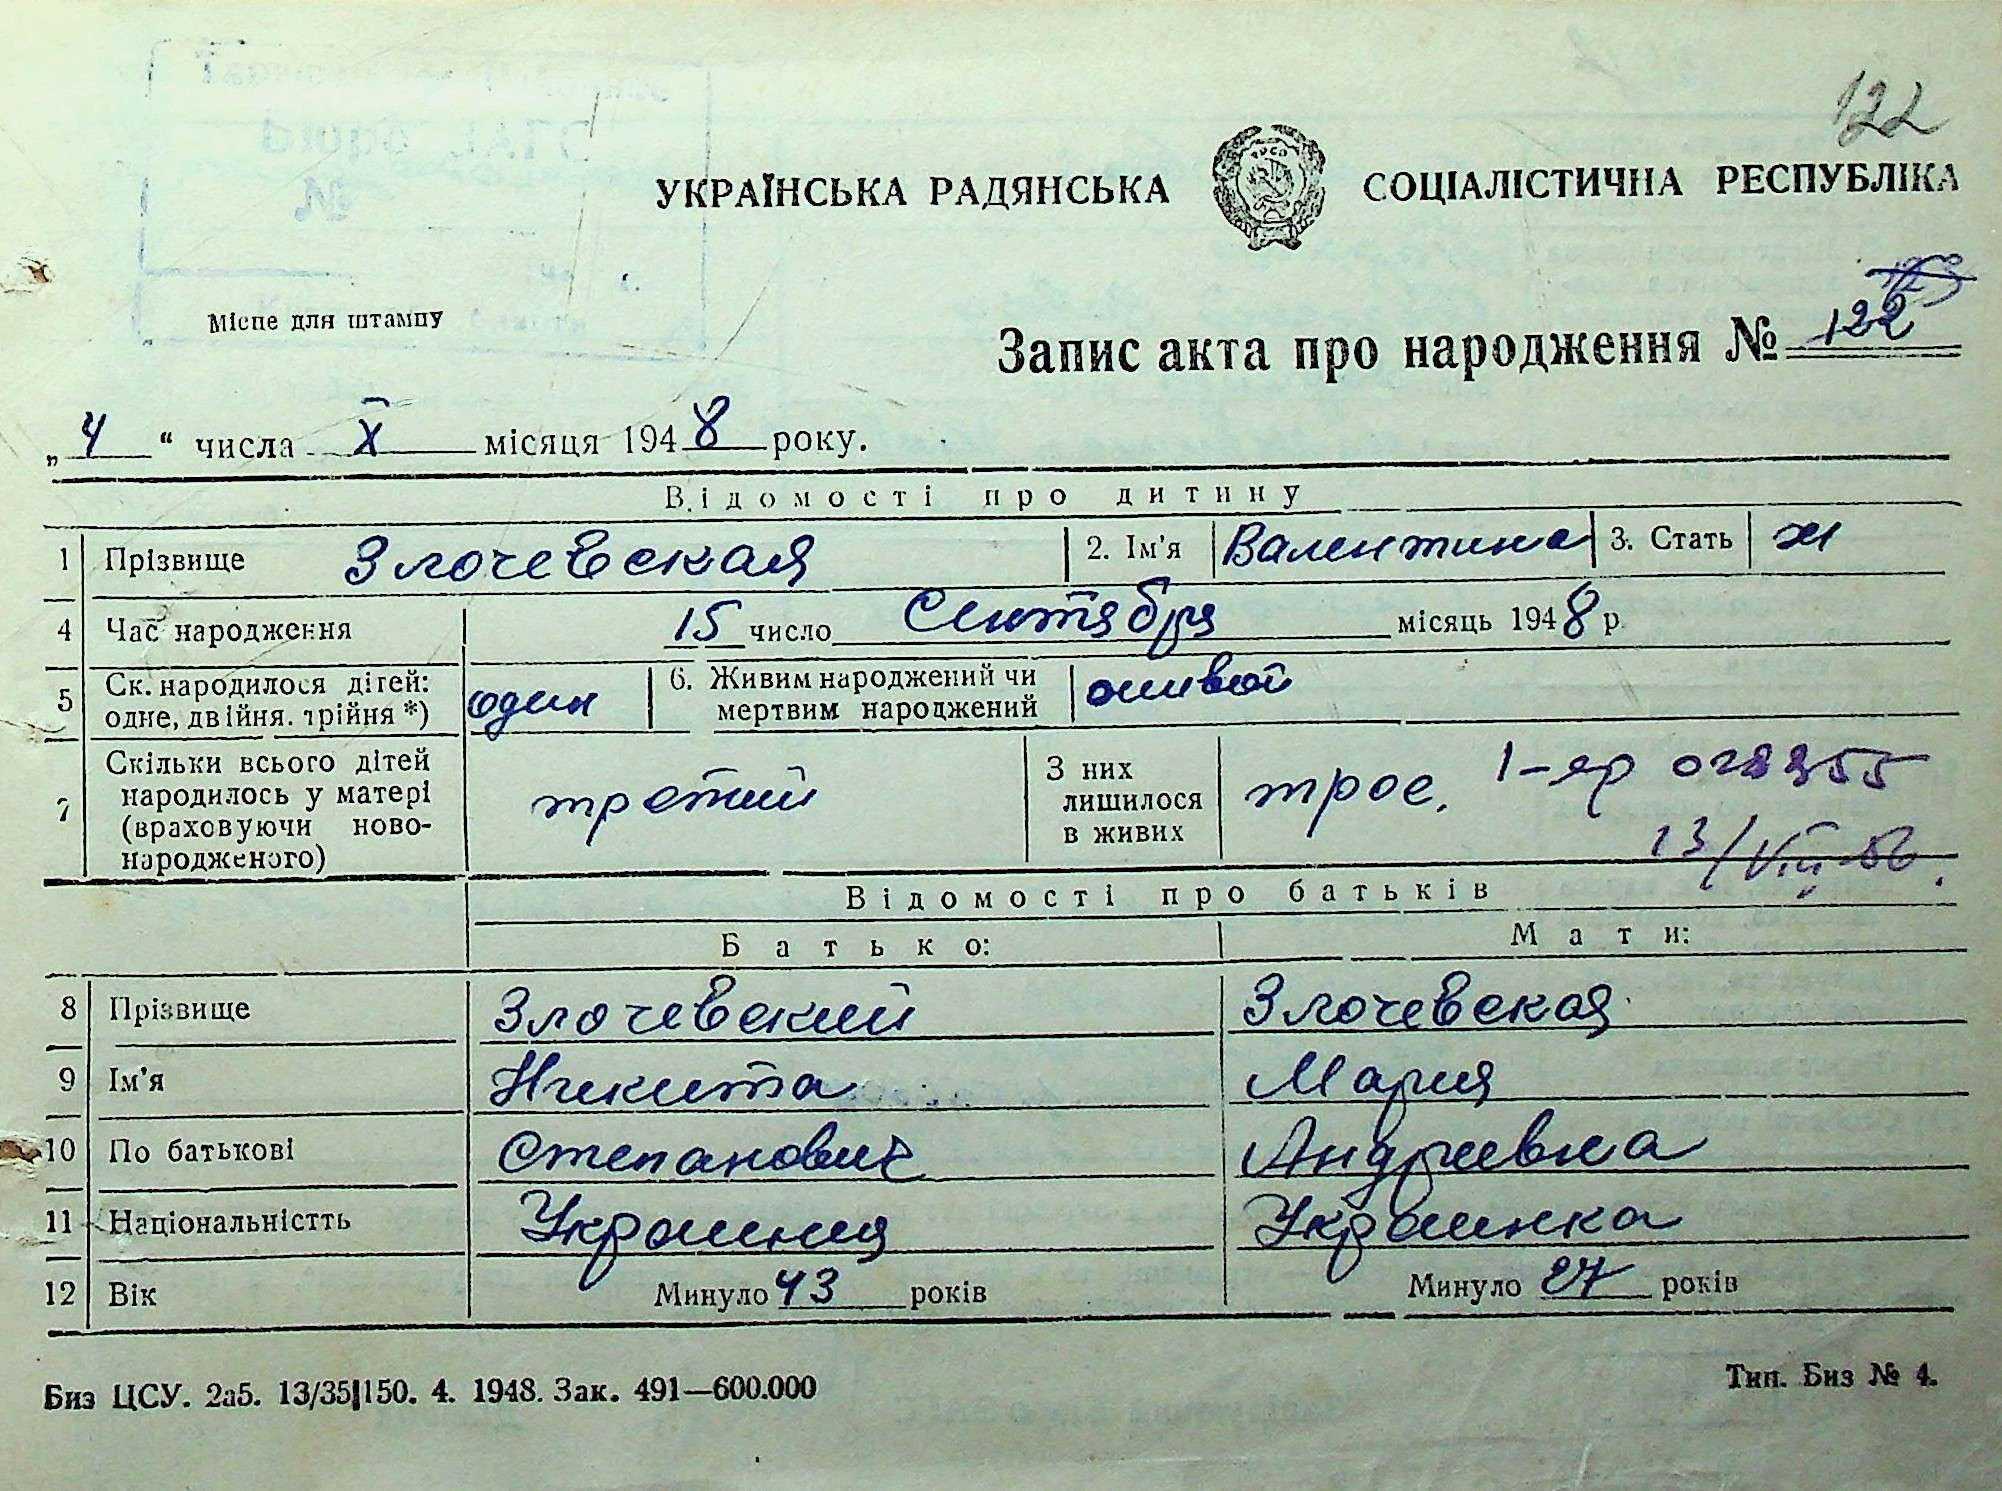 122
УКРАЇНСЬКА РАДЯНСЬКА СОЦІАЛІСТИЧНА РЕСПУБЛІКА
Місце для штампу
123
Запис акта про народження № 122
„4“ числа X місяця 1948 року.
Відомості про дитину
1 Прізвище Злочевская 2. Ім'я Валентина 3. Стать ж
4 Час народження 15 число Сентября місяць 1948 р
5 Ск. народилося дітей: одне, двійня. трійня *) один 6. Живим народжений чи мертвим народжений живой
7 Скільки всього дітей народилось у матері (враховуючи ново-народженого) третий З них лишилося в живих трое. 1-яр 028355
13/VIII-56.
Відомості про батьків
Батько: Мати:
8 Прізвище Злочевский Злочевская
9 Ім'я Никита Мария
10 По батькові Степанович Андреевна
11 Національністть Украинец Украинка
12 Вік Минуло 43 років Минуло 27 років
Биз ЦСУ. 2а5. 13/35|150. 4. 1948. Зак. 491—600.000 Тип. Биз № 4.